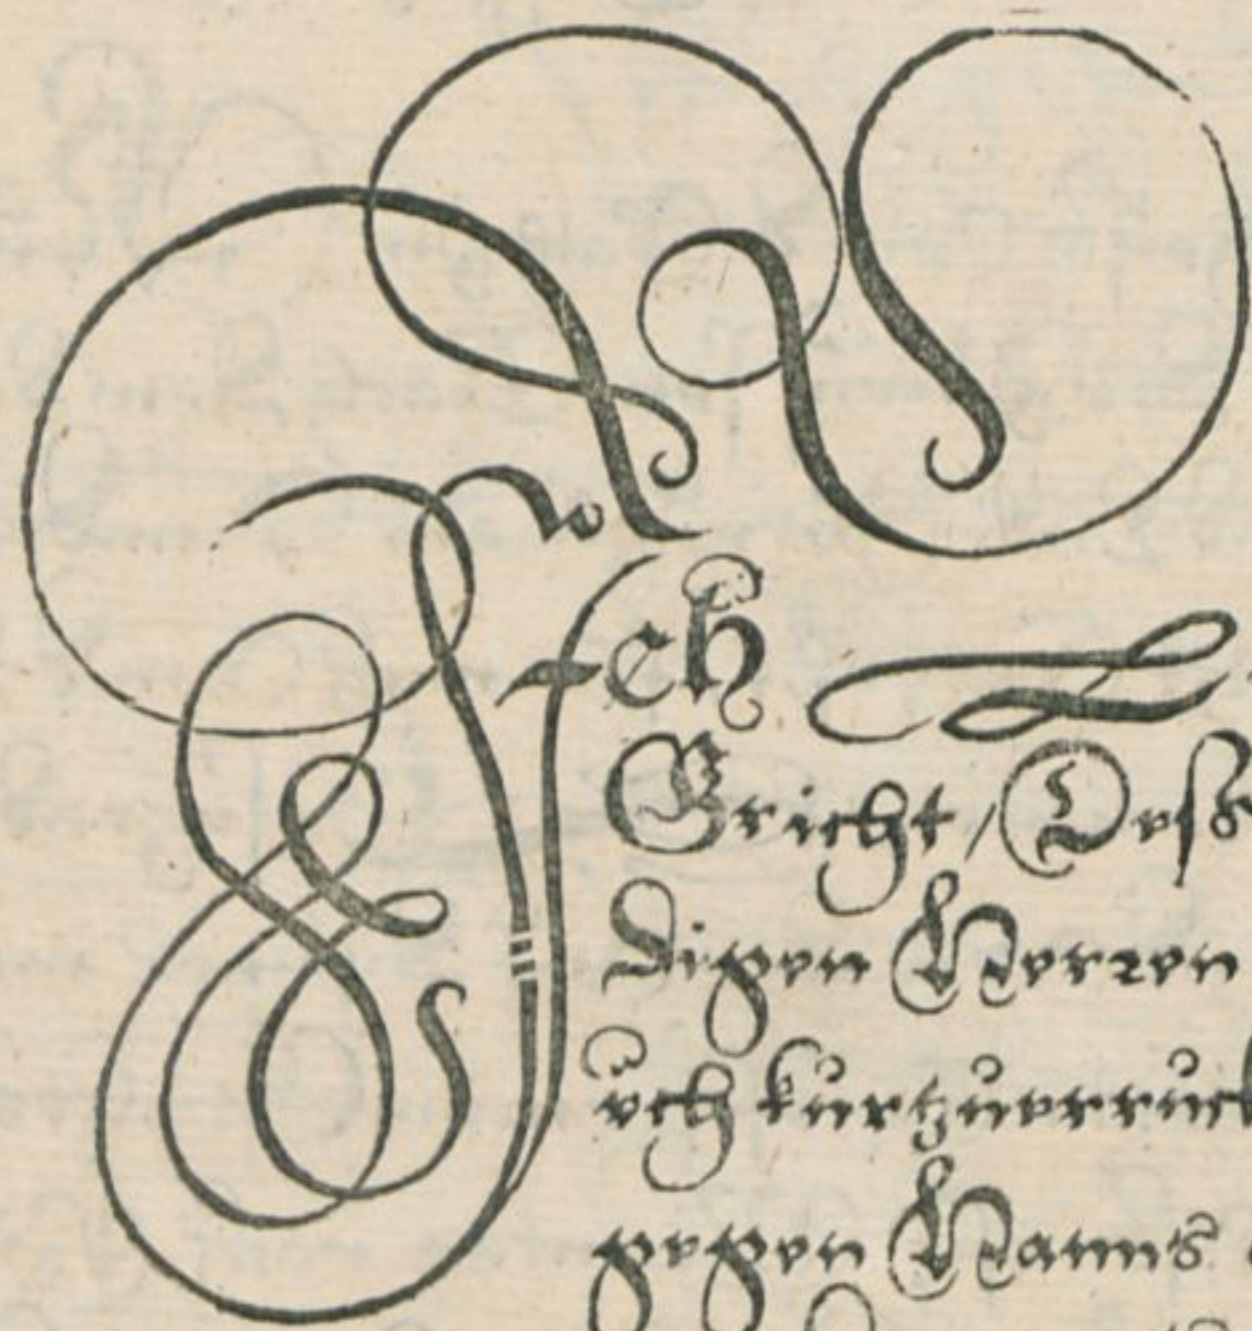 Jch
Gricht / Deß
digen Herren
uch kurtzuerruck
gegen Hanns